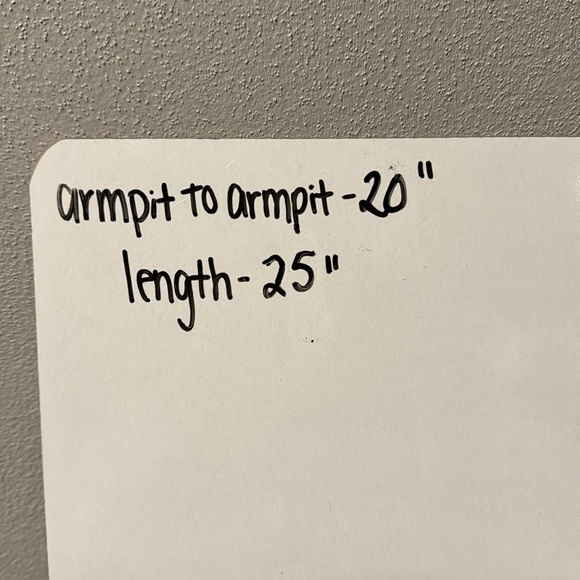 armpit to armpit - 20"
length - 25"